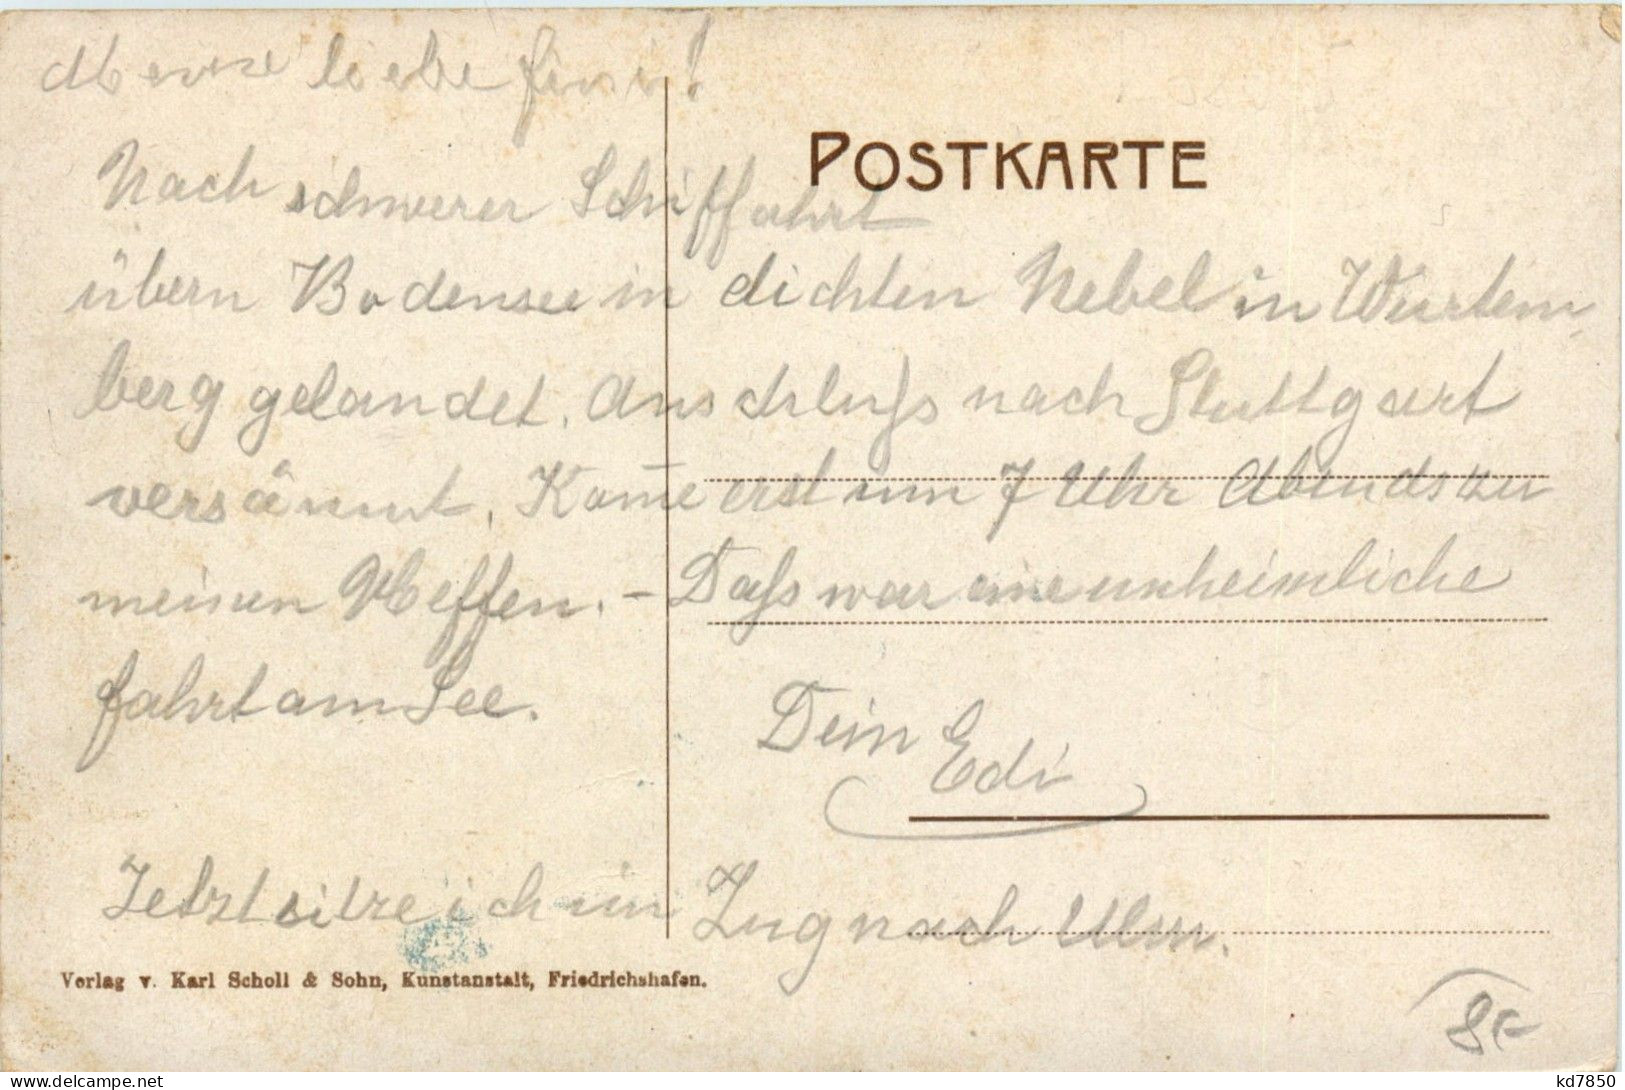 Meine liebe Fini!
POSTKARTE
Nach schwerer Schiffahrt
übern Bodensee in dichten Nebel in Würtem-
berg gelandet. Anschluß nach Stuttgart
versäumt. Kom̄e erst um 7 Uhr Abends zu
meinen Neffen. – Daß war eine unheimliche
fahrt am See.
Dein Edi
Jetzt sitze ich im Zug nach Ulm.
Verlag v. Karl Scholl & Sohn, Kunstanstalt, Friedrichshafen.
kd7850